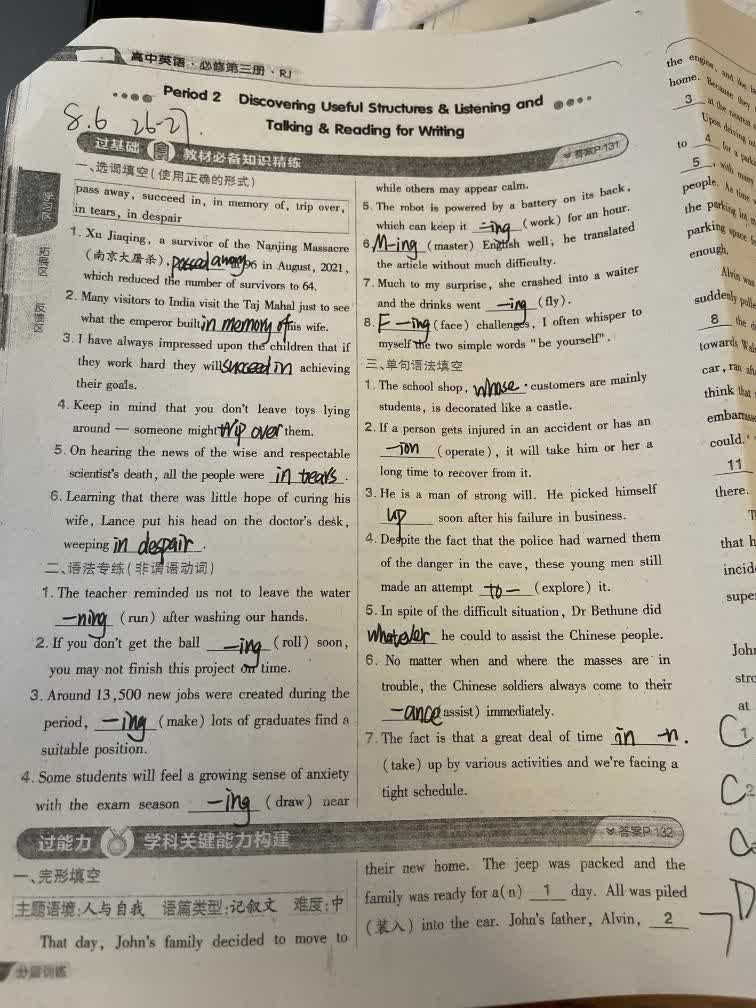 高中英语·必修第三册·RJ
Period 2 Discovering Useful Structures & Listening and
Talking & Reading for Writing
8.6 26-27.
过基础 教材必备知识精练
答案P131
一、选词填空(使用正确的形式)
pass away, succeed in, in memory of, trip over,
in tears, in despair
1. Xu Jiaqing, a survivor of the Nanjing Massacre
(南京大屠杀), passed away at 96 in August, 2021,
which reduced the number of survivors to 64.
2. Many visitors to India visit the Taj Mahal just to see
what the emperor built in memory of his wife.
3. I have always impressed upon the children that if
they work hard they will succeed in achieving
their goals.
4. Keep in mind that you don't leave toys lying
around — someone might trip over them.
5. On hearing the news of the wise and respectable
scientist's death, all the people were in tears.
6. Learning that there was little hope of curing his
wife, Lance put his head on the doctor's desk,
weeping in despair.
二、语法专练(非谓语动词)
1. The teacher reminded us not to leave the water
-ning (run) after washing our hands.
2. If you don't get the ball -ing (roll) soon,
you may not finish this project on time.
3. Around 13,500 new jobs were created during the
period, -ing (make) lots of graduates find a
suitable position.
4. Some students will feel a growing sense of anxiety
with the exam season -ing (draw) near
while others may appear calm.
5. The robot is powered by a battery on its back,
which can keep it -ing (work) for an hour.
6. M-ing (master) English well, he translated
the article without much difficulty.
7. Much to my surprise, she crashed into a waiter
and the drinks went -ing (fly).
8. F-ing (face) challenges, I often whisper to
myself the two simple words "be yourself".
三、单句语法填空
1. The school shop, whose customers are mainly
students, is decorated like a castle.
2. If a person gets injured in an accident or has an
-ion (operate), it will take him or her a
long time to recover from it.
3. He is a man of strong will. He picked himself
up soon after his failure in business.
4. Despite the fact that the police had warned them
of the danger in the cave, these young men still
made an attempt to- (explore) it.
5. In spite of the difficult situation, Dr Bethune did
whatever he could to assist the Chinese people.
6. No matter when and where the masses are in
trouble, the Chinese soldiers always come to their
-ance (assist) immediately.
7. The fact is that a great deal of time in -n.
(take) up by various activities and we're facing a
tight schedule.
过能力 学科关键能力构建
答案P132
一、完形填空
主题语境:人与自我 语篇类型:记叙文 难度:中
That day, John's family decided to move to
their new home. The jeep was packed and the
family was ready for a(n) 1 day. All was piled
(装入) into the car. John's father, Alvin, 2
分层训练
学习区
拓展区
反馈区
the engine, and the
home. Because they
3 at the nearest
Upon driving
to 4 for a
5, with many
people. As time
the parking lot,
parking space
enough.
Alvin was
suddenly
8 the
towards
car, ran
think that
could.
11
there.
that
John
at
C 1
C 2
D